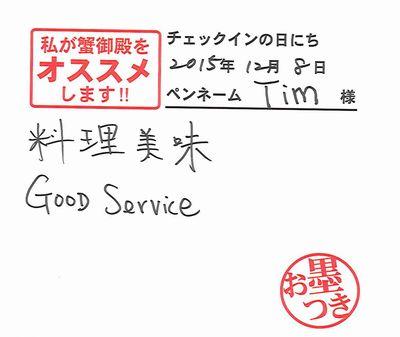 私が蟹御殿を
オススメ
します!!
チェックインの日にち
2015年 12月 8日
ペンネーム Tim 様
料理美味
GOOD Service
お墨
つき